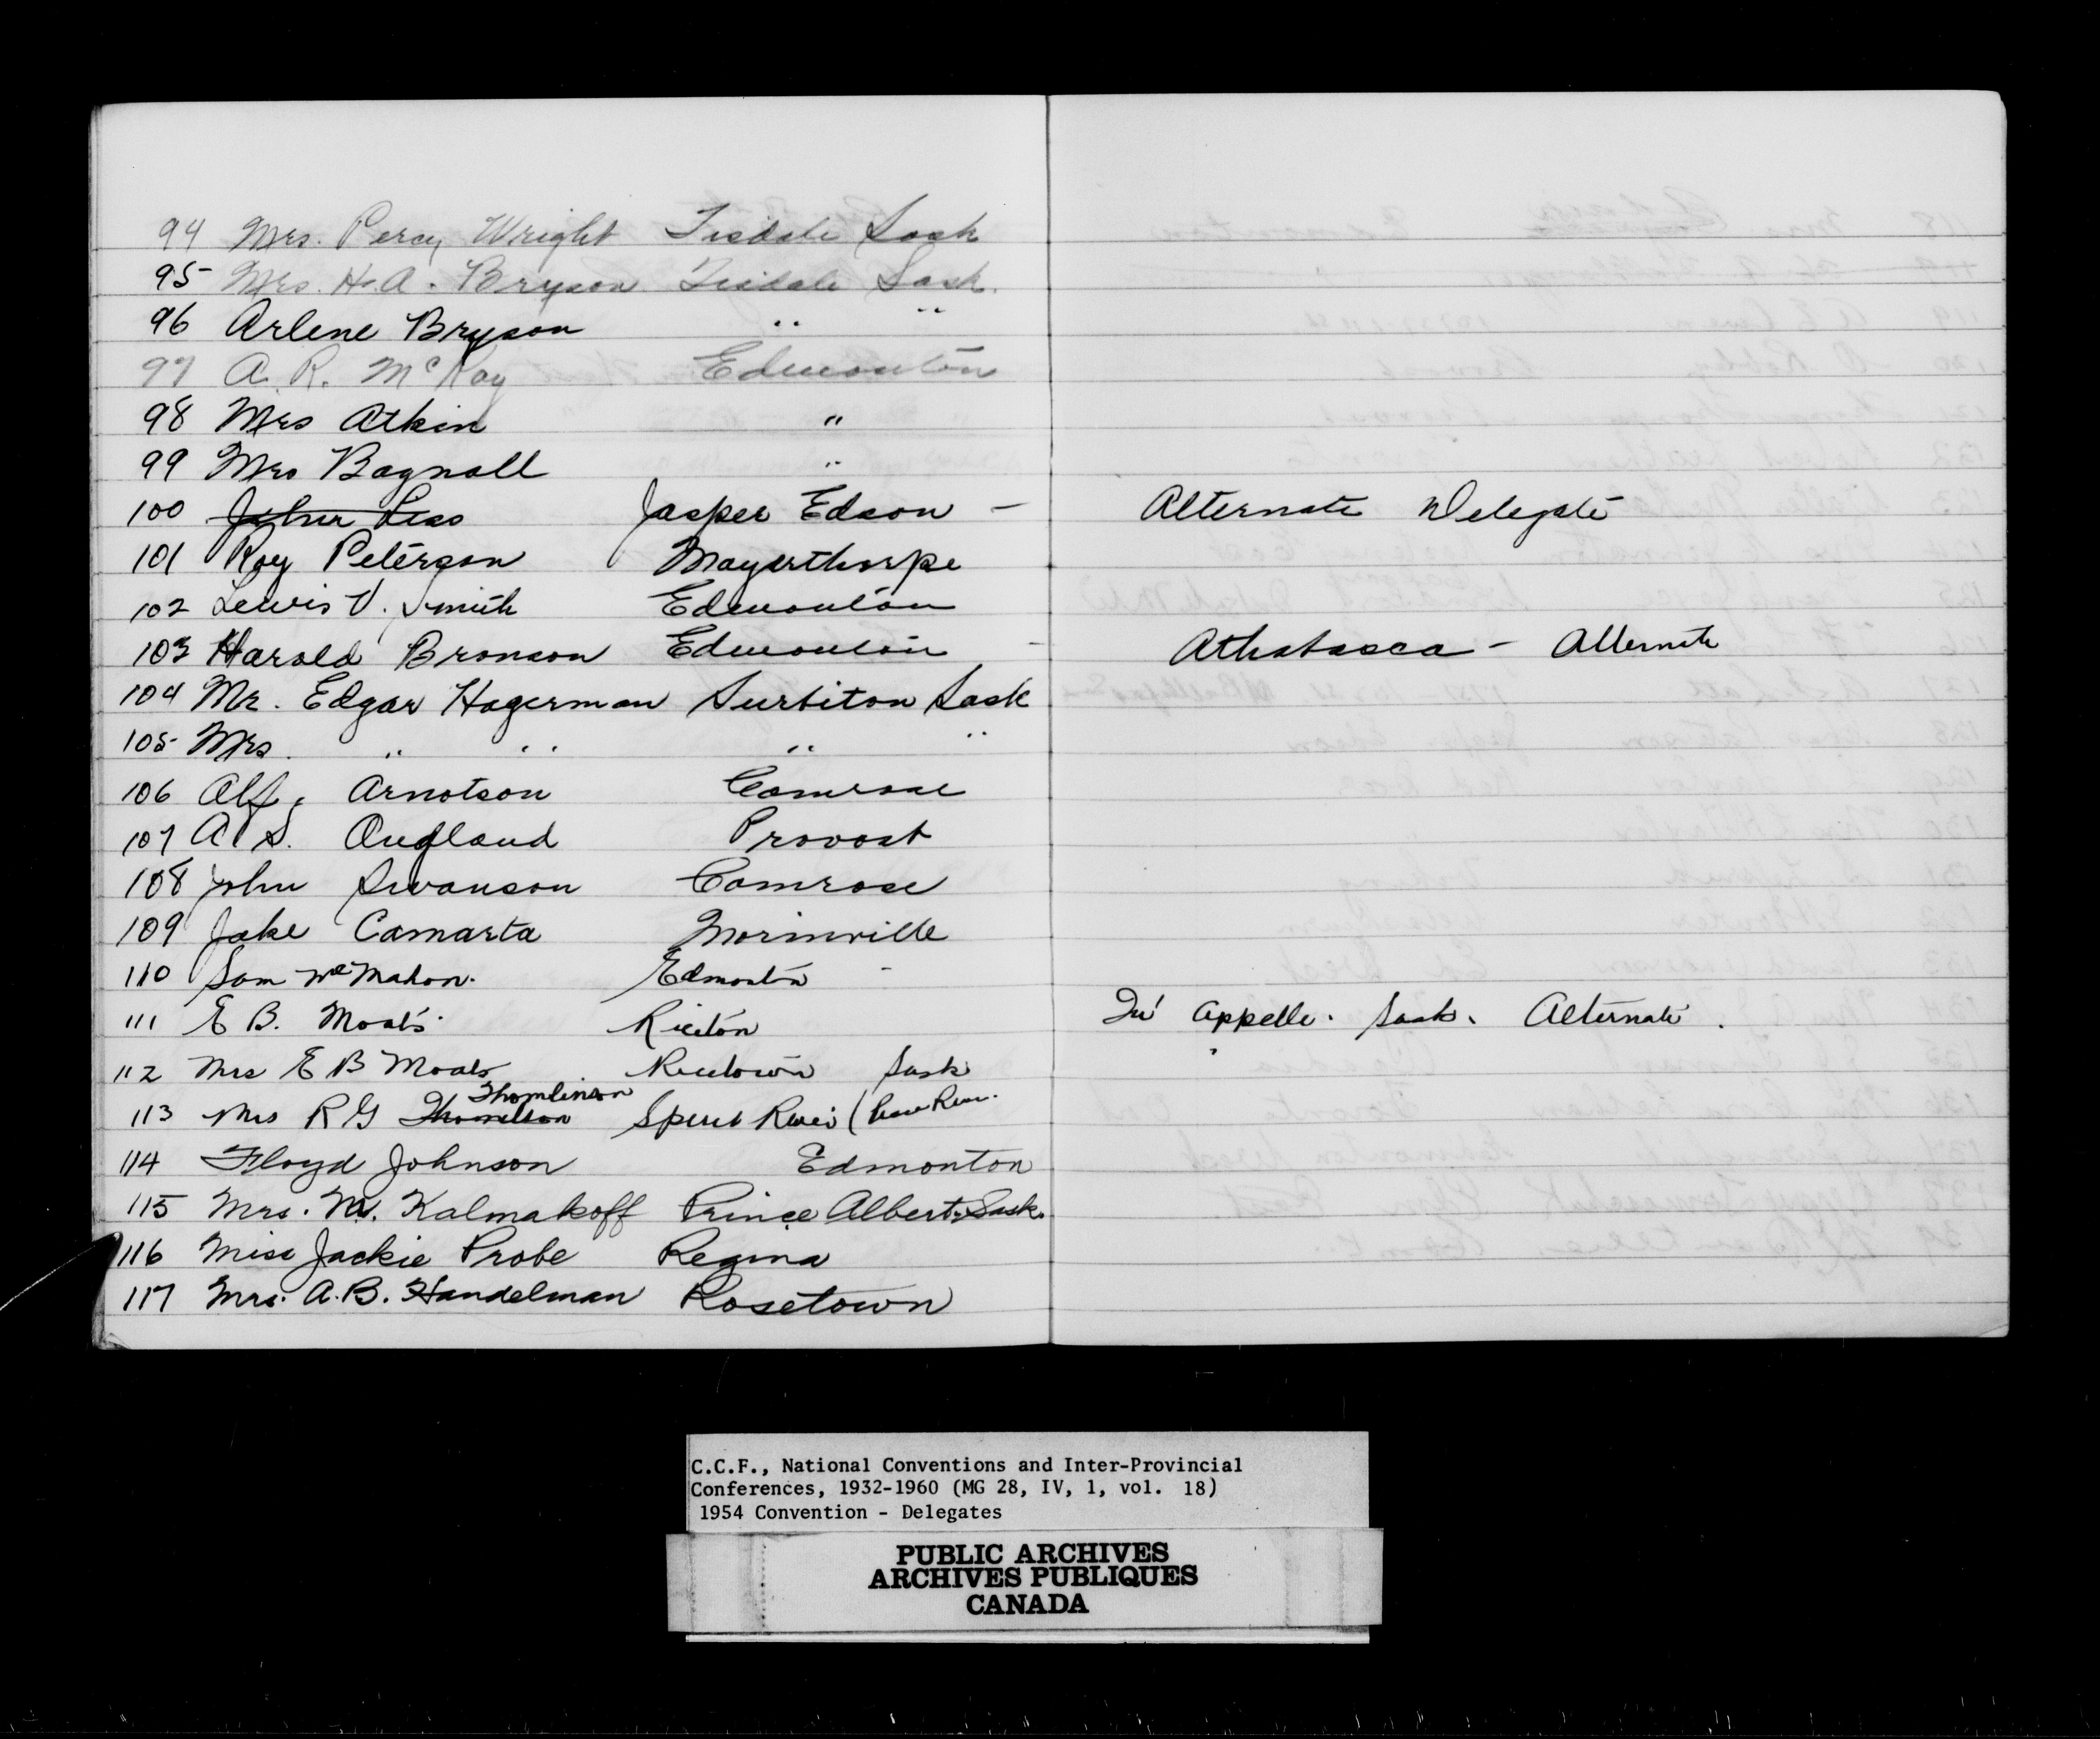 94 Mrs. Percy Wright Tisdale Sask
95 Mrs. H.A. Bryson Tisdale Sask.
96 Arlene Bryson " "
97 A. R. McKay Edmonton
98 Mrs Atkin "
99 Mrs Bagnall "
100 John Liss Jasper Edson - Alternate Delegate
101 Roy Peterson Mayerthorpe
102 Lewis V. Smith Edmonton
103 Harold Bronson Edmonton - Athabasca - Alternate
104 Mr. Edgar Hagerman Surbiton Sask
105 Mrs. " " " "
106 Alf. Arnotson Camrose
107 A S. Ougland Provost
108 John Swanson Camrose
109 Jake Camarta Morinville
110 Sam McMahon. Edmonton -
111 E B. Moats. Riceton Qu'Appelle. Sask. Alternate.
112 Mrs E B Moats Sask
113 Mrs R G Thomlinson Spirit River (Peace River.
114 Floyd Johnson Edmonton
115 Mrs. M. Kalmakoff Prince Albert, Sask.
116 Miss Jackie Probe Regina
117 Mrs. A.B. Handelman Rosetown
C.C.F., National Conventions and Inter-Provincial
Conferences, 1932-1960 (MG 28, IV, 1, vol. 18)
1954 Convention - Delegates
PUBLIC ARCHIVES
ARCHIVES PUBLIQUES
CANADA